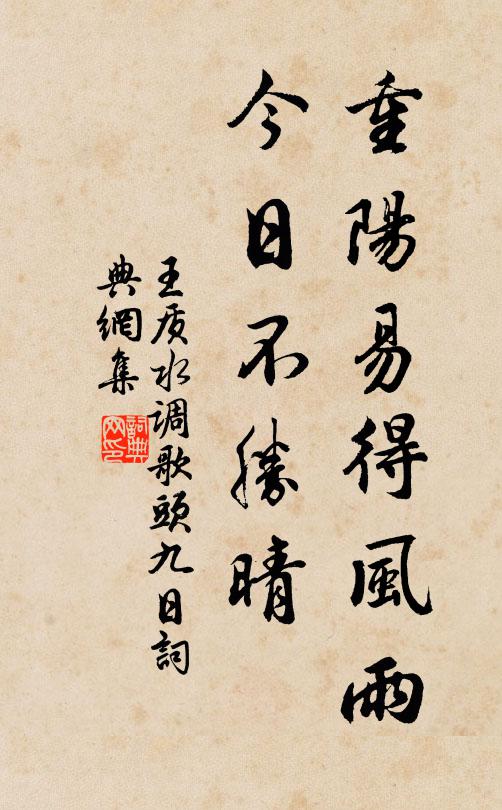 重陽易得風雨
今日不勝晴
王质水调歌頭九日詞
典網集
詞典
网印